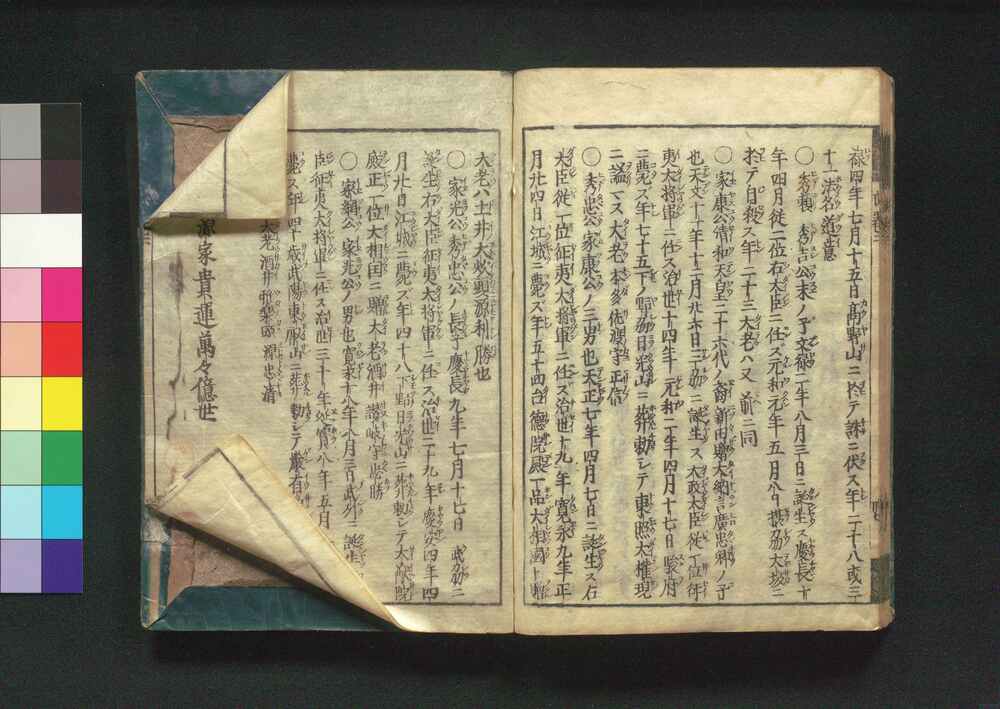 禄四年七月十五日髙野山ニ於テ誅ニ伏ス年二十八或三
十一法名道意
〇秀頼 秀吉公末ノ子文禄二年八月三日ニ誕生ス慶長十
年四月従二位右大臣ニ任ス元和元年五月八日摂刕大坂ニ
於テ自殺ス年二十三大老ハ又前ニ同
〇家康公清和天皇二十六代ノ裔新田贈大納言廣忠卿ノ子
也天文十一年十二月廿六日三刕ニ誕生ス太政大臣従一位征
夷大将軍ニ任ス治世十四年元和二年四月十七日駿府
ニ薨ス年七十五下野刕日光山ニ葬勅シテ東照大権現
ニ謚ス大老本多佐渡守正信
〇秀忠公家康公ノ三男也天正七年四月七日ニ誕生ス右
大臣従一位征夷大将軍ニ任ス治世十九年寛永九年正
月廿四日江城ニ薨ス年五十四台德院殿一品大相國ト贈
大老ハ土井大炊頭源利勝也
〇家光公秀忠公ノ長子慶長九年七月十七日武刕ニ
誕生右大臣征夷大将軍ニ任ス治世二十九年慶安四年四
月廿日江城ニ薨ス年四十八下野日光山ニ葬勅シテ大猷院
殿正一位大相国ニ贈大老酒井讃岐守忠勝
〇家綱公家光公ノ男也寛永十八年八月三日武州ニ誕生
臣征夷大将軍ニ任ス治世三十年延寳八年五月
薨ス年四十歳武陽東叡山ニ葬勅シテ嚴有
大老酒井雅楽頭源忠清
源家貴運萬々億世